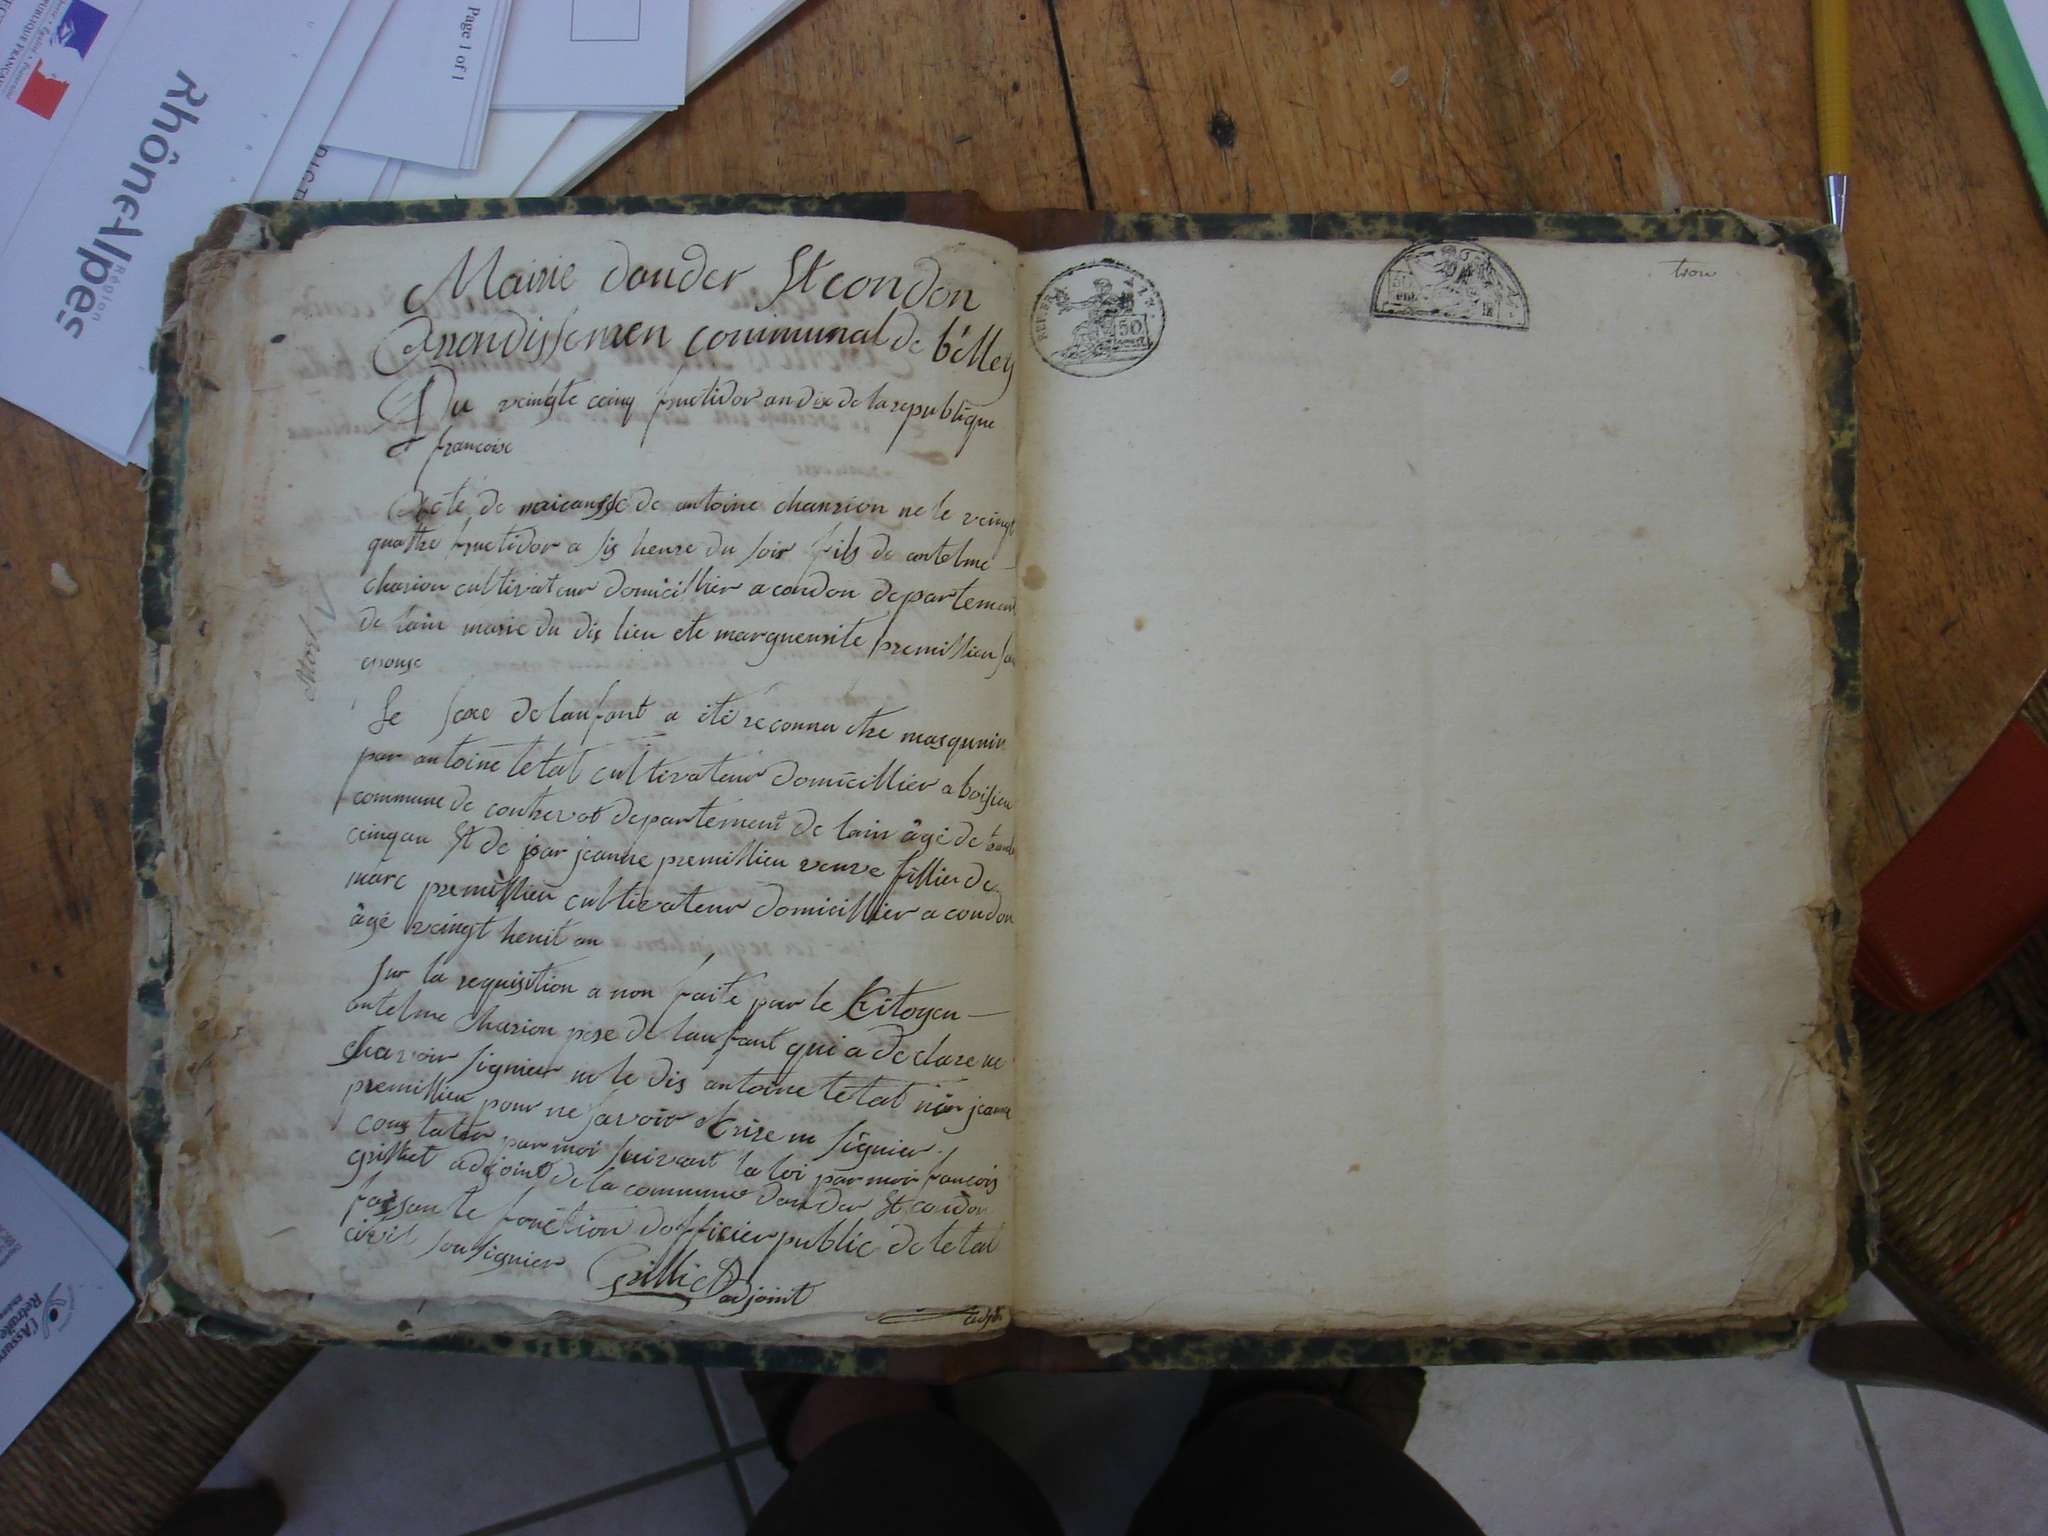 Rhône-Alpes
Région
Page 1 of 1
Mairie dander St condon
Arrondissemen communal de bélley
Du veingte ceinq fructidor an dix de la republique
francoise
Acte de naicansse de antoine chanrion ne le veingt
quattre fructidor a sis heure du soir fils de antelme
charion cultivateur domicillier a condon departement
de lain marie du dis lieu ete margueurite premillieu sa
epouse
Le sexe de lanfant a été reconnu etre masqunin
par antoine tetat cultivateur domicillier a boisieu
commune de departement de lain âgé de
ceinq an St de par jeanne premillieu veuve fillier de
marc premillieu cultivateur domicillier a condon
âgé veingt heuit an
Sur la requisition a non faite par le Citoyen
antelme charion pere de lanfant qui a declare ne
savoir signier ni le dis antoine tetat nin jeanne
premillieu pour ne savoir etrire ni signier.
constater par moi suivant la loi par moi fancois
grilliet adjoint de la commune dander St condon
faisan te fonction dofficier public de letat
civil sousignier
Grilliet adjoint
Mort
50
trou